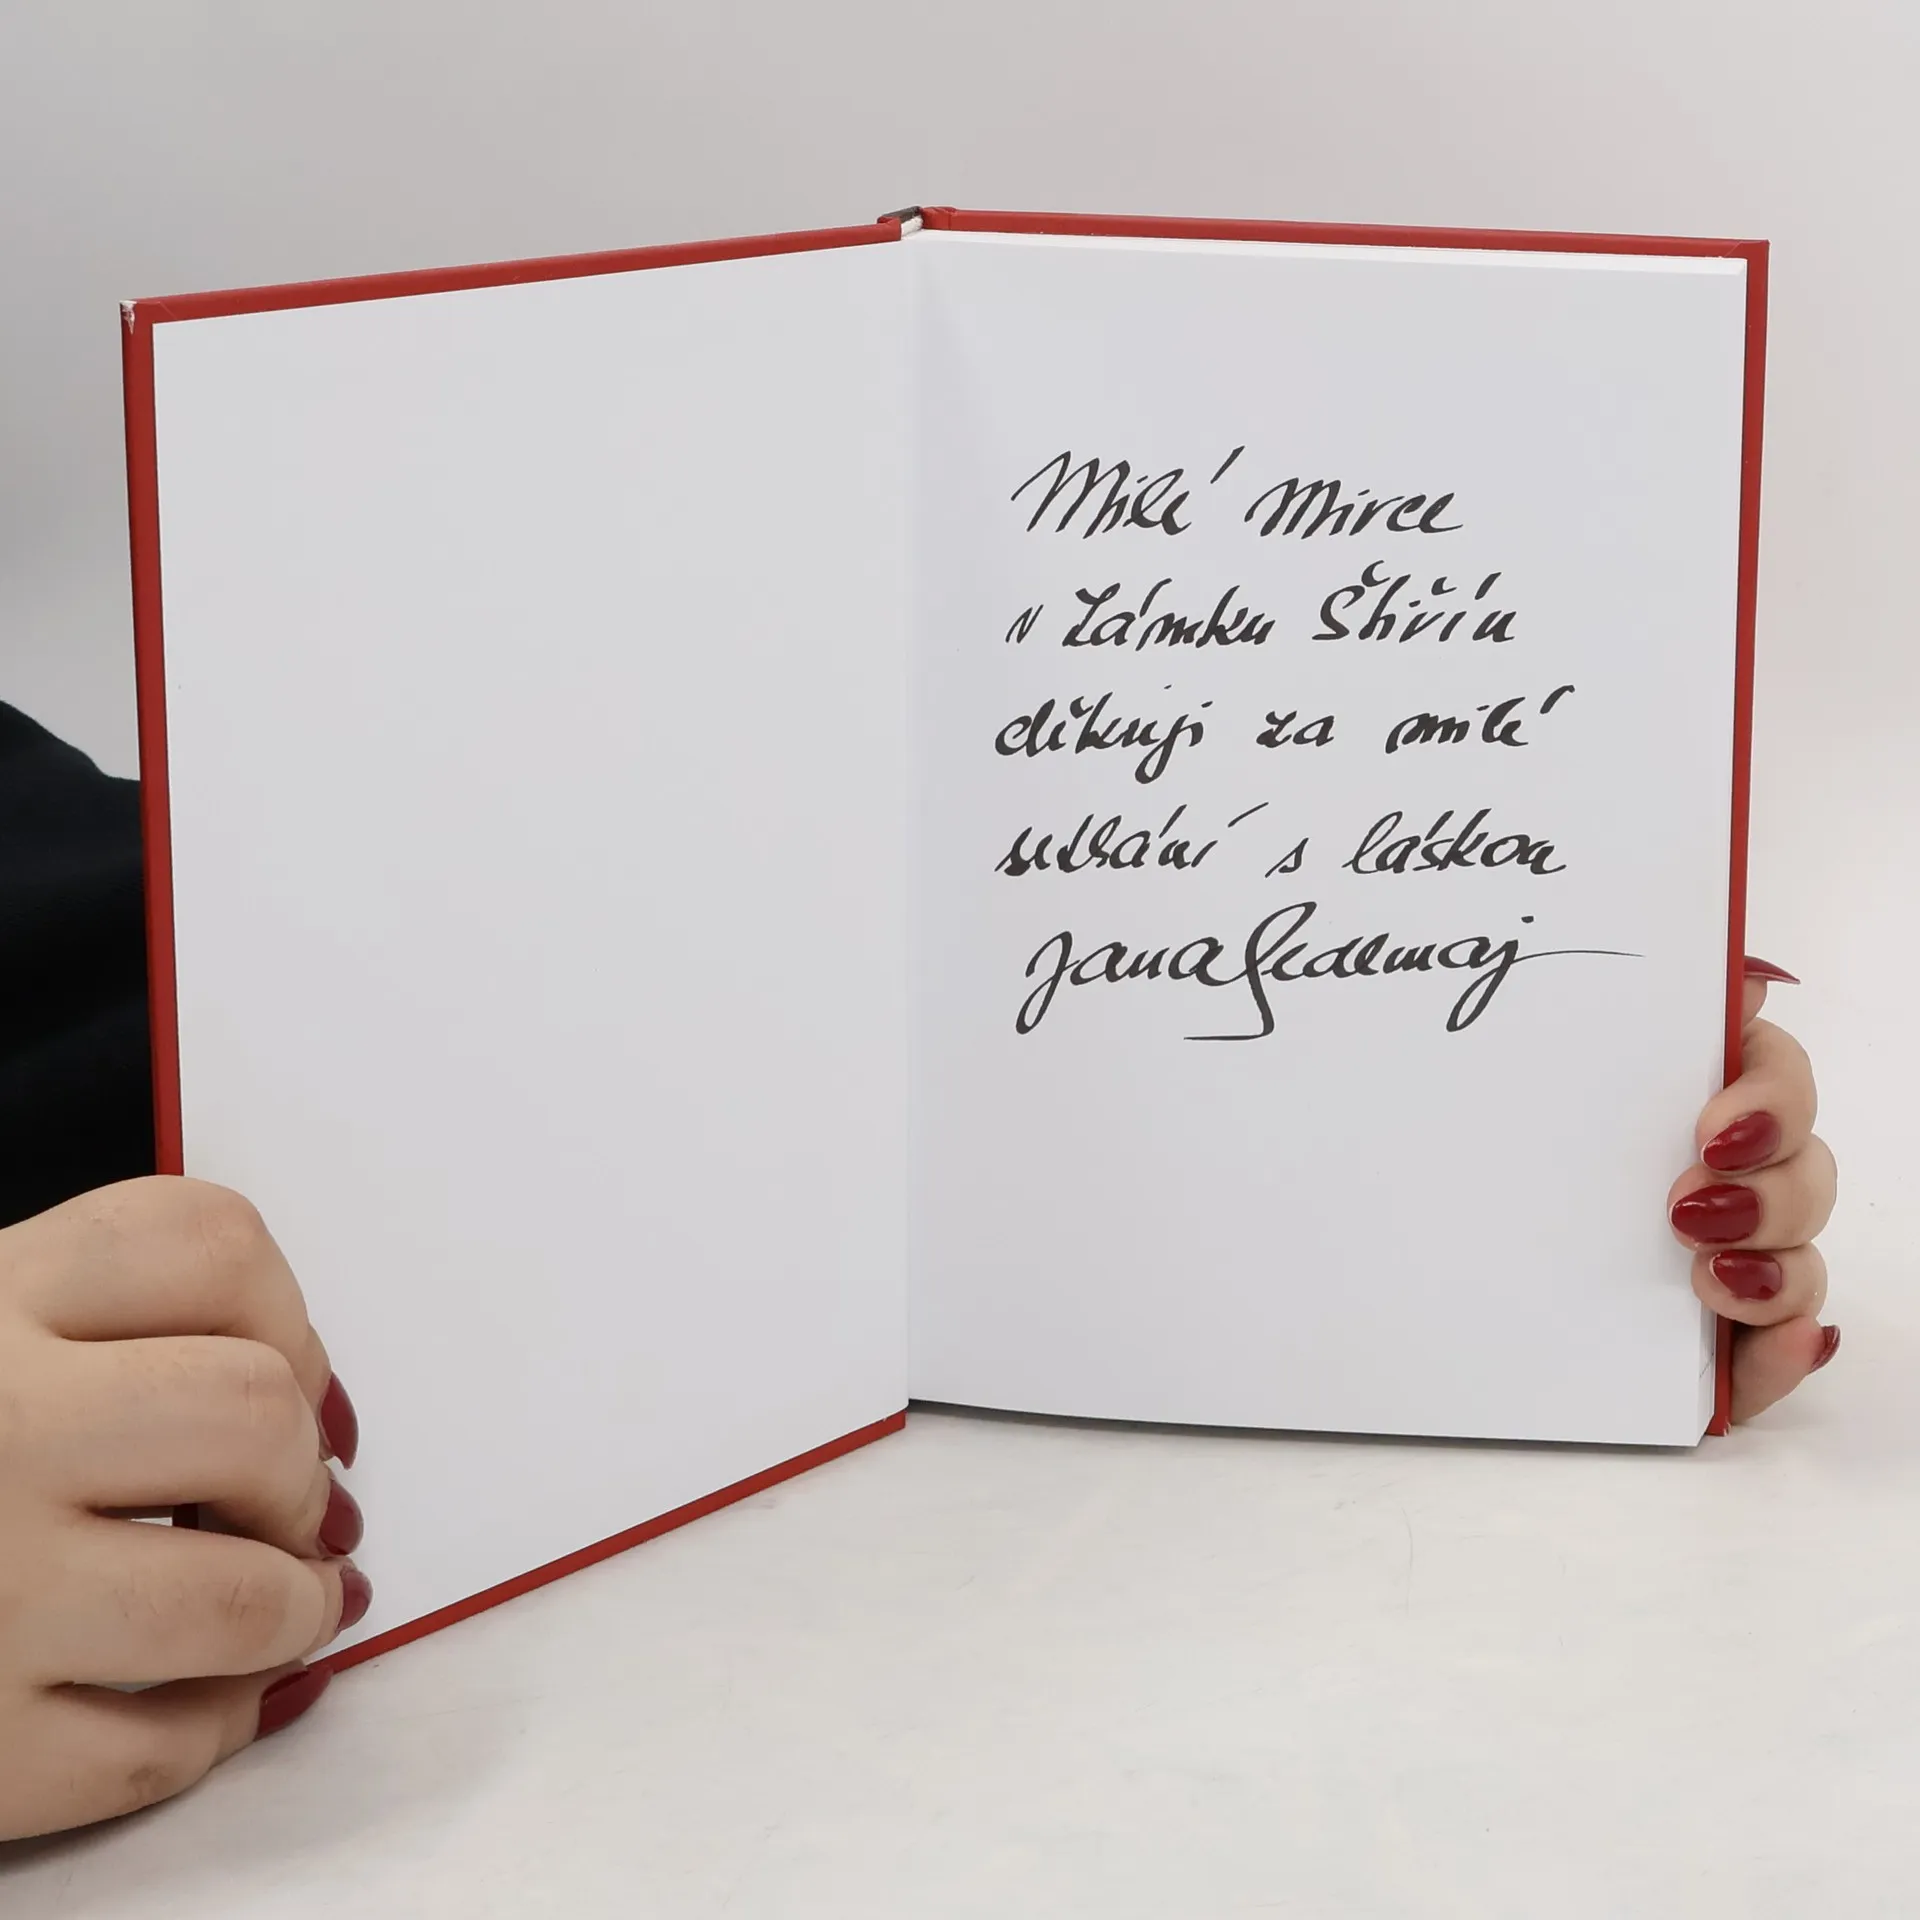 Milé Mirce
v Zámku Štiřín
děkuji za milé
setkání s láskou
Jana Sedlmaj